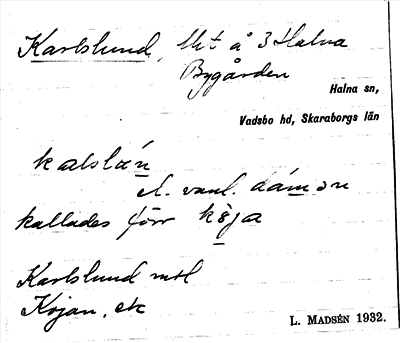 Karlslund, lht å 3 Halna
Bygården
Halna sn,
Vadsbo hd, Skaraborgs län
kalslán
el. vanl. dámǝn
kallades förr kö̀ja
Karlslund mtl
Kojan, ek
L. MADSÉN 1932.